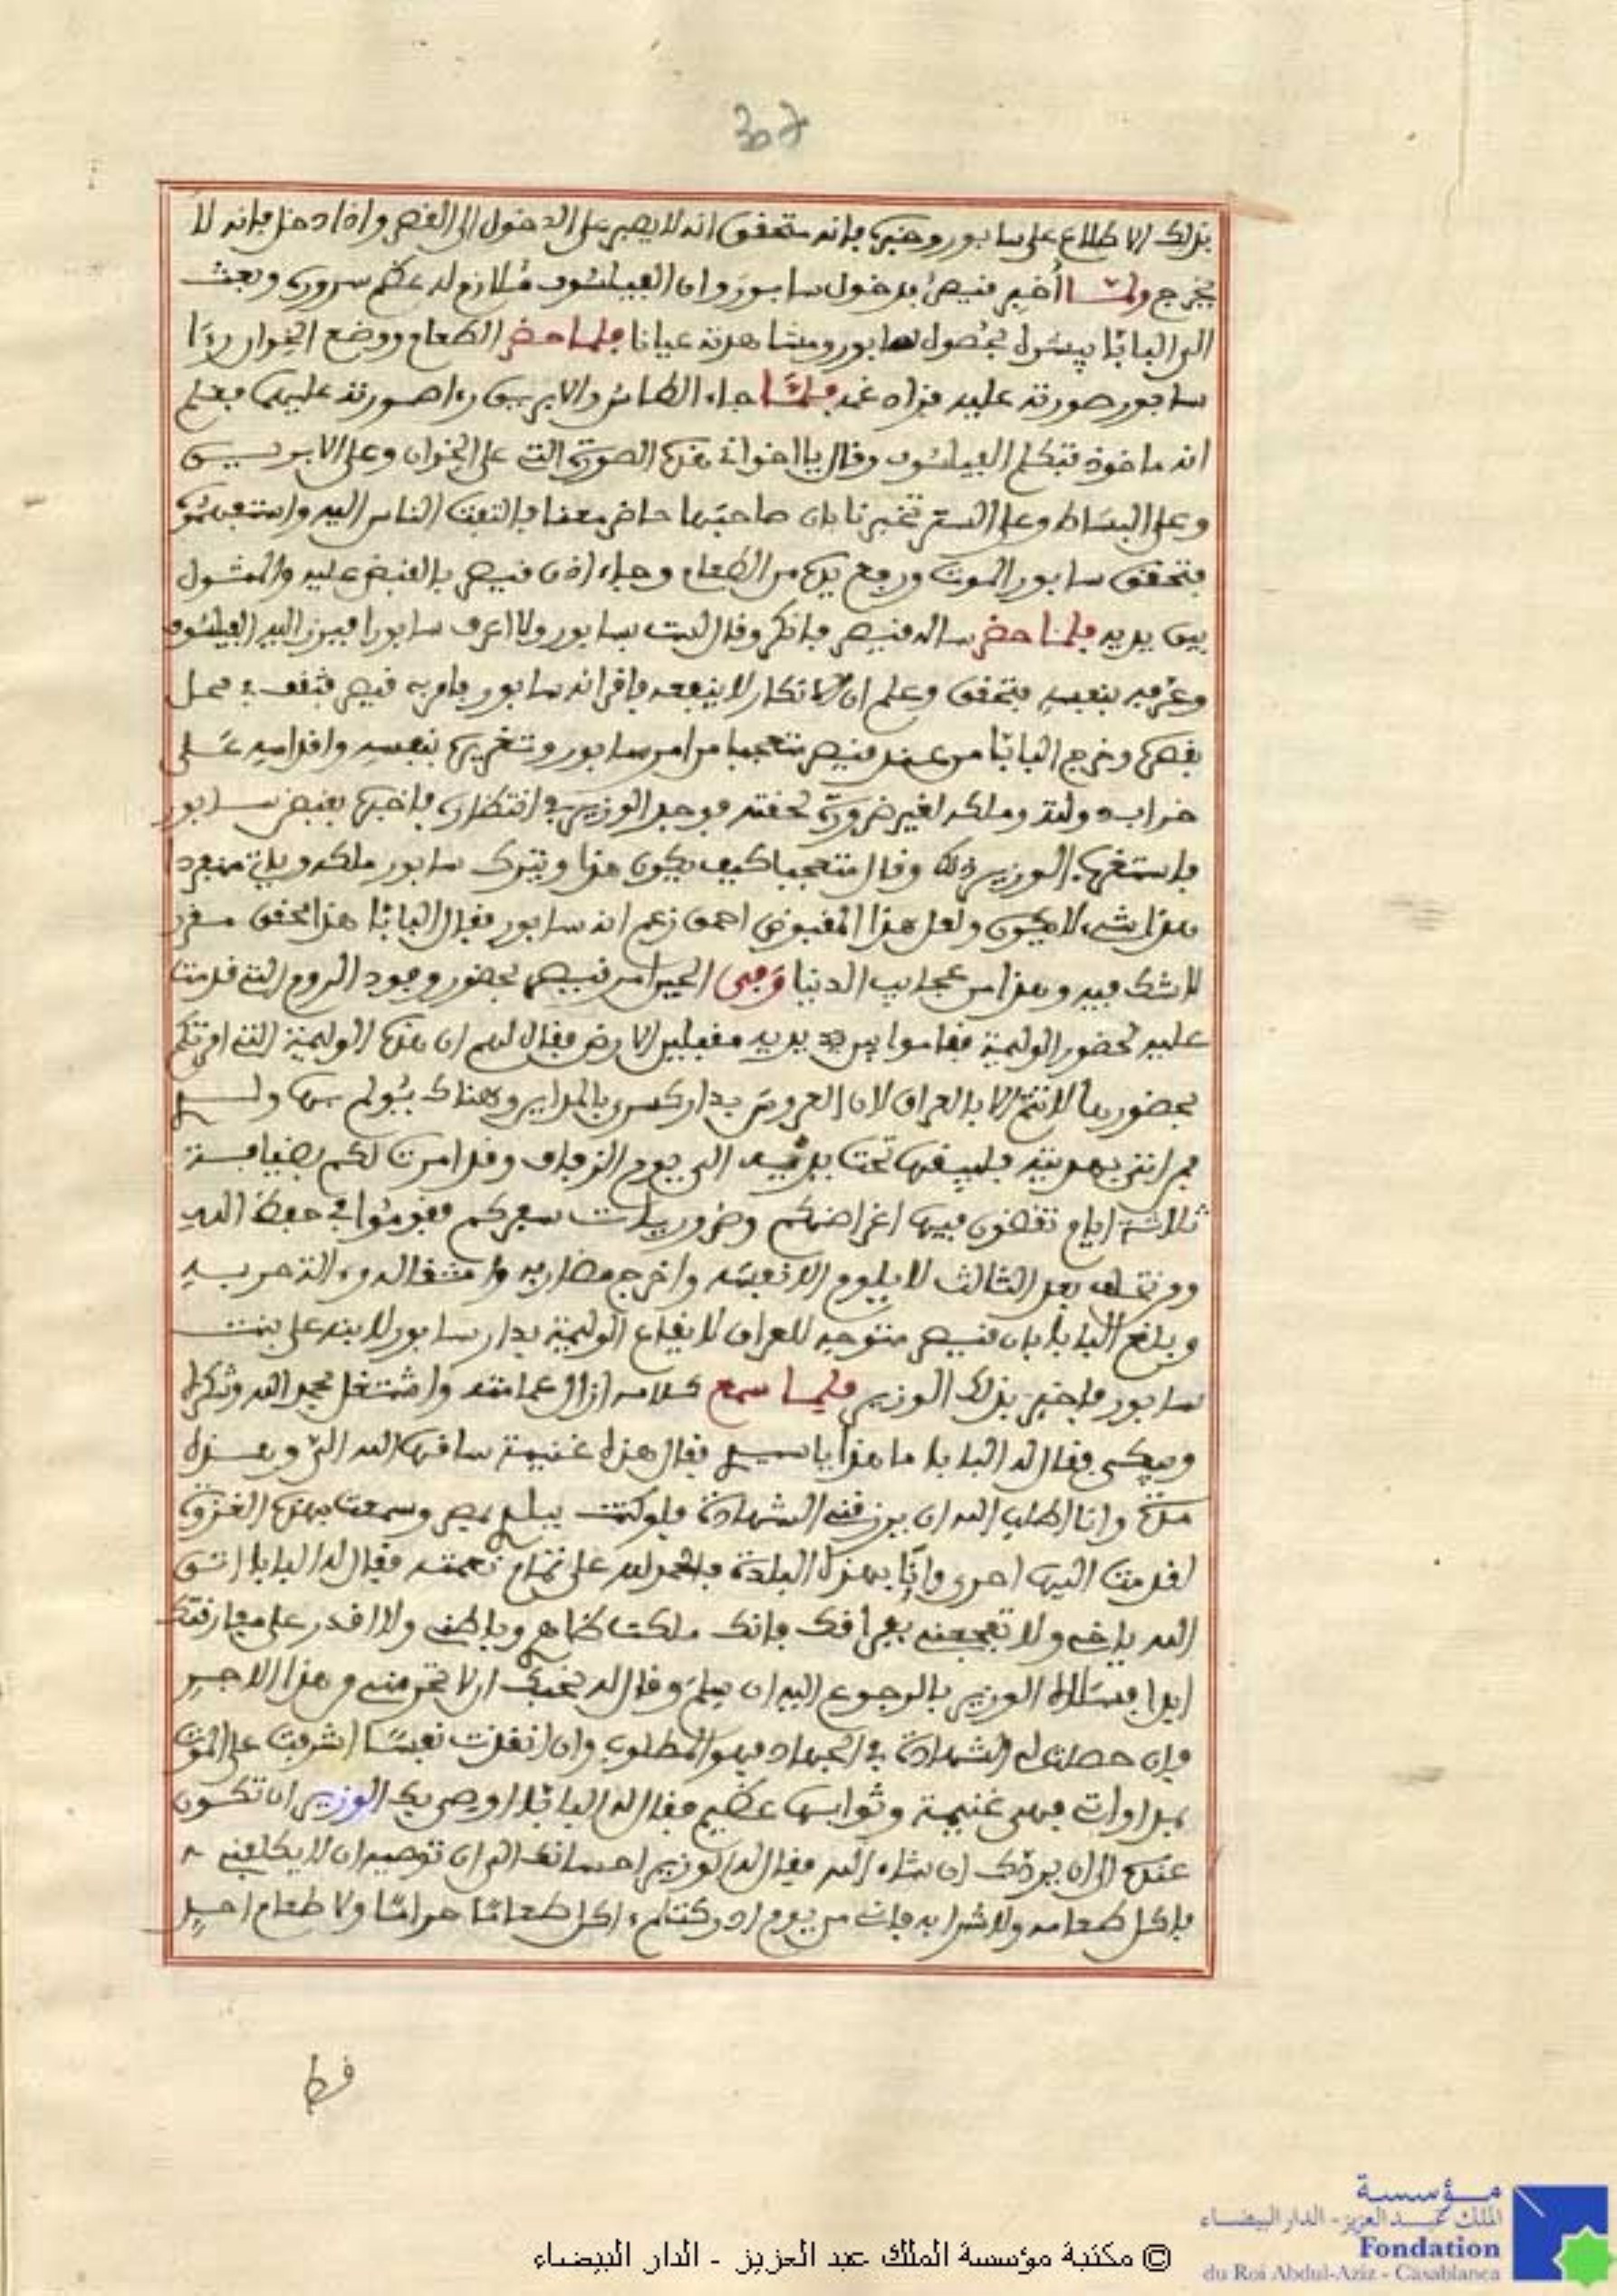 307
بذلك الاطلاع على سابور وخبره فانه متحقق انه لا يصبر على الدخول الى القصر واذا دخل فانه لا
يخرج ولما أخبر قيصر بدخول سابور وان الفيلسوف ملازم له عظم سروره وبعث
الى البابا يبشره بحصول سابور ومشاهدته عيانا فلما حضر الطعام ووضع الخوان رءا
سابور صورته عليه فزاد غمه فلما جاء الطاس والابريق رءا صورته عليهما فعلم
انه ماخوذ فتكلم الفيلسوف وقال يا اخواني هذه الصورة التي على الخوان وعلى الابريق
وعلى البساط وعلى الستر تخبرنا بان صاحبها حاضر معنا فالتفت الناس اليه
فتحقق سابور الموت ورفع يده من الطعام وجاء اذن قيصر بالقبض عليه والمثول
بين يديه فلما حضر ساله قيصر فانكر وقال لست بسابور ولا اعرف سابورا فبرز اليه الفيلسوف
وعرفه بنفسه فتحقق وعلم ان الانكار لا ينفعه فاقر انه سابور فامر به قيصر فثقف في محل
بقصره وخرج البابا من عند قيصر متعجبا من امر سابور وتغريره بنفسه واقدامه على
خراب دولته وملكه لغير ضرورة لحقته فوجد الوزير في انتظاره فاخبره بقبض سابور
فاستغرب الوزير ذلك وقال متعجبا كيف يكون هذا ويترك سابور ملكه وياتي منفردا
هذا شيء لا يكون ولعل هذا المقبوض احمق زعم انه سابور فقال البابا هذا محقق مقرر
لا شك فيه وهذا من عجايب الدنيا وفي الحين امر قيصر بحضور وجوه الروم التي قدمت
عليه لحضور الوليمة فقاموا بين يديه مقبلين الارض فقال لهم ان هذه الوليمة التي امرتكم
بحضورها لا تتم الا بالعراق لان العروس بدار كسرى بالمداين وهناك يولم بها
فمن اتى بهدية فليبقها تحت يده الى يوم الزفاف وقد امرت لكم بضيافة
ثلاثة ايام تقضون فيها اغراضكم وضروريات سفركم فقوموا في حفظ الله
ومن تخلف بعد الثالث لا يلوم الا نفسه واخرج مضاربه
وبلغ البابا بان قيصر متوجه للعراق لايقاع الوليمة بدار سابور لابنه على بنت
سابور فاخبر بذلك الوزير فلما سمع كلامه ازال عمامته واشتغل بحمد الله وشكره
ويبكي فقال له البابا ما هذا يا فقال هذه غنيمة ساقها الله الي وهذه
مدة وانا اطلب الله ان يرزقني الشهادة فلو كنت ببلد بمصر وسمعت بهذه الغزوة
لقدمت اليها احرى وانا بهذه البلدة فالحمد لله على تمام نعمته فقال له البابا اتق
الله ياخي ولا تفجعني بفراقك فانك ملكت ظاهري وباطني ولا اقدر على مفارقتك
ابدا فسال الوزير بالرجوع اليه ان سلم وقال له نحبك ان لا تحرمني من هذا الاجر
فان حصلت لي الشهادة في الجهاد فهو المطلوب وان انقذت نفسا اشرفت على الموت
بمداوات فهي غنيمة وثوابها عظيم فقال له البابا اوصي بك الوزير ان تكون
عنده الى ان يردك ان شاء الله فقال له الوزير احسانك الي ان توصيه ان لا يكلفني
باكل طعامه ولا شرابه فاني من يوم ادركت لم اكل طعاما حراما ولا طعام احد
قط
مؤسسة
الملك عبد العزيز - الدار البيضاء
Fondation
du Roi Abdul-Aziz - Casablanca
© مكتبة مؤسسة الملك عبد العزيز - الدار البيضاء